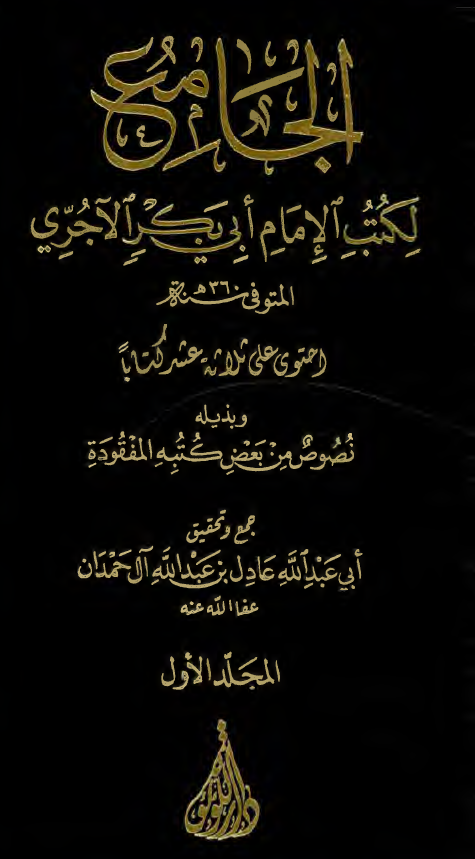 الجامع
لِكُتُبِ الإِمَامِ أَبِي بَكْرٍ الآجُرِّي
المتوفى سنة ٣٦٠هـ
احتوى على ثلاثة عشر كتاباً
وبذيله
نُصُوصٌ مِنْ بَعْضِ كُتُبِهِ المَفْقُودَةِ
جمع وتحقيق
أَبي عَبْدِ اللَّهِ عَادِل بن عَبْدِ اللَّهِ آل حَمْدَان
عفا الله عنه
المجَلّد الأول
دار اللؤلؤة